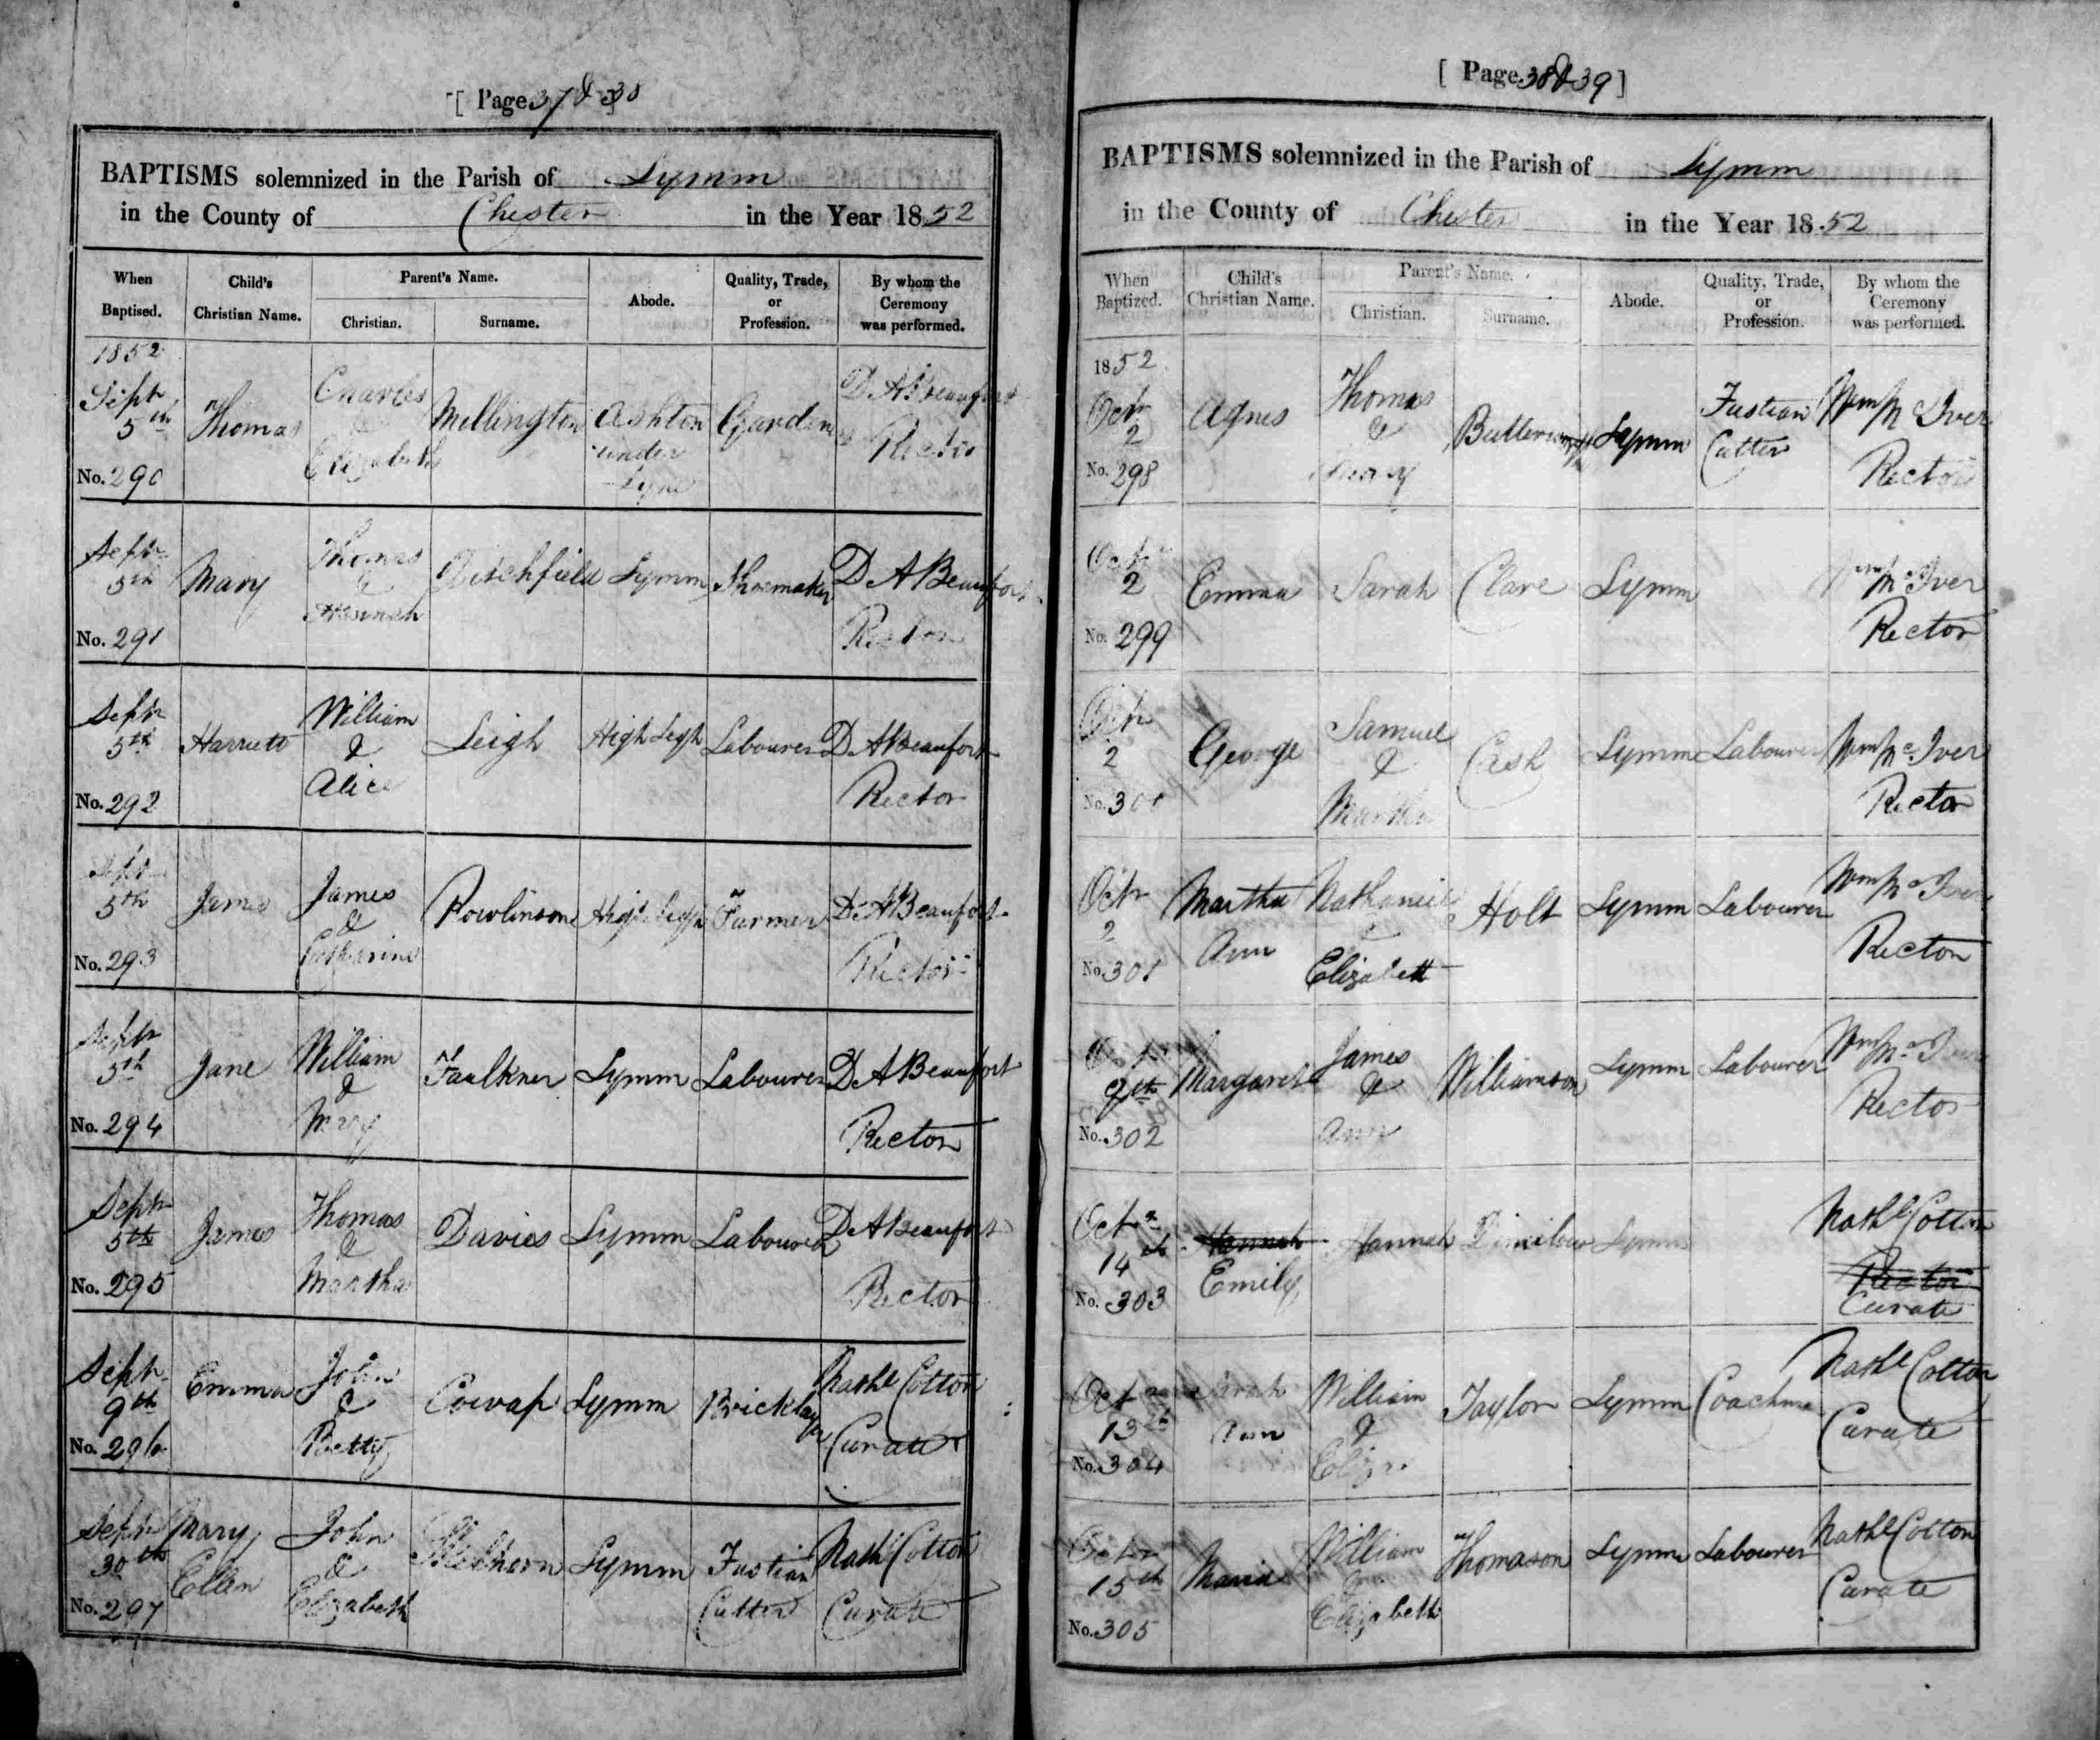 [ Page 37 & 38
BAPTISMS solemnized in the Parish of Lymm
in the County of Chester in the Year 1852
When Baptised. Child's Christian Name. Parent's Name. Christian. Surname. Abode. Quality, Trade, or Profession. By whom the Ceremony was performed.
1852
Septr 5th Thomas Charles & Elizabeth Millington Ashton under Lyne Gardener D A Beaufort Rector
No. 290
Septr 5th Mary Thomas & Hannah Ditchfield Lymm Shoemaker D A Beaufort Rector
No. 291
Septr 5th Harriett William & Alice Leigh High Legh Labourer D A Beaufort Rector
No. 292
Septr 5th James James & Catharine Rowlinson High Legh Farmer D A Beaufort Rector
No. 293
Septr 5th Jane William & Mary Faulkner Lymm Labourer D A Beaufort Rector
No. 294
Septr 5th James Thomas & Martha Davies Lymm Labourer D A Beaufort Rector
No. 295
Septr 9th Emma John & Betty Cowap Lymm Bricklayer Nathl Cotton Curate
No. 296
Septr 30th Mary Ellen John & Elizabeth Lymm Fustian Cutter Nathl Cotton Curate
No. 297
[ Page 38 & 39 ]
BAPTISMS solemnized in the Parish of Lymm
in the County of Chester in the Year 1852
When Baptized. Child's Christian Name. Parent's Name. Christian. Surname. Abode. Quality, Trade, or Profession. By whom the Ceremony was performed.
1852
Octr 2 Agnes Thomas & Mary Lymm Fustian Cutter Wm McIver Rector
No. 298
Octr 2 Emma Sarah Clare Lymm Wm McIver Rector
No. 299
Octr 2 George Samuel & Martha Cash Lymm Labourer Wm McIver Rector
No. 301
Octr 2 Martha Ann Nathaniel & Elizabeth Holt Lymm Labourer Wm McIver Rector
No. 301
Octr 9th Margaret James & Ann Williamson Lymm Labourer Wm McIver Rector
No. 302
Octr 14th Hannah Emily Hannah Lymm Nathl Cotton Rector Curate
No. 303
Octr 13th Sarah Ann William & Eliza Taylor Lymm Coachman Nathl Cotton Curate
No. 304
Octr 15th Maria William & Elizabeth Thomason Lymm Labourer Nathl Cotton Curate
No. 305